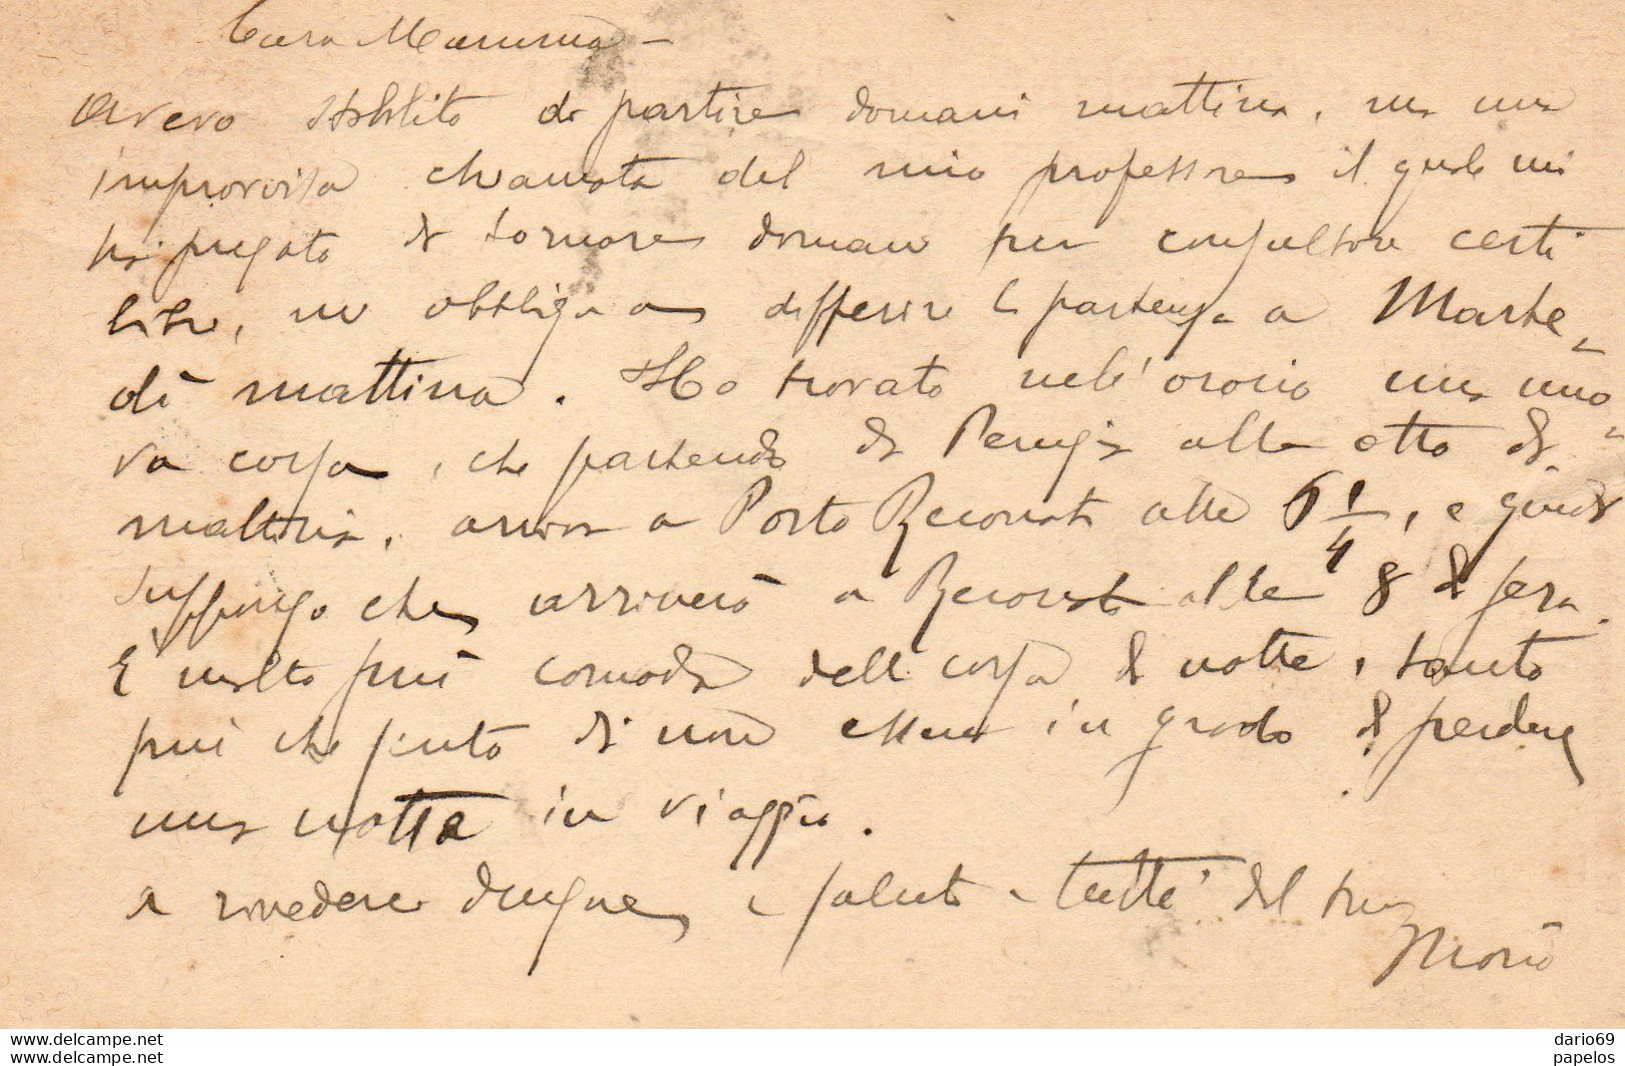 Cara Mamma –
Avevo stabilito di partire domani mattina, ma una
improvvisa chiamata del mio professore il quale mi
ha pregato di tornare domani per consultare certi
libri, mi obbliga a differire la partenza a Marte-
dì mattina. Ho trovato nell'orario una nuo-
va corsa, che partendo da Perugia alle otto di
mattina, arriva a Porto Recanati alle 6 1/4, e quindi
suppongo che arriverà a Recanati alle 8 di sera.
È molto più comoda della corsa di notte, tanto
più che sento di non essere in grado di perdere
una notte in viaggio.
A rivedere dunque, e saluti a tutti dal tuo
Mario
www.delcampe.net
www.delcampe.net
dario69
papelos